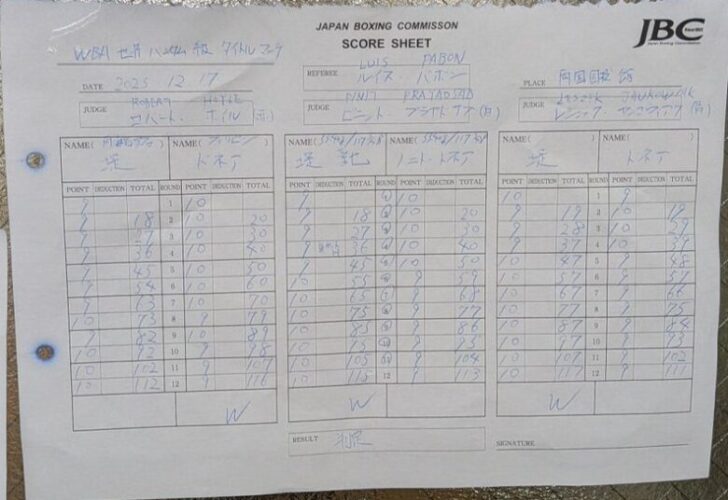 JAPAN BOXING COMMISSON
SCORE SHEET
JBC
Japan Boxing Commission
WBA 世界 バンタム 級 タイトルマッチ
DATE 2025 12 17
REFEREE LUIS PABON
ルイス・パボン
PLACE 両国国技館
JUDGE ロバート・ホイル
JUDGE PINIT PRAYADSAB
ピニット・プラヤドサブ
JUDGE
NAME( ) 堤 NAME( フィリピン ) ドネア
NAME( ) 堤 聖也 NAME( ) ノニト・ドネア
NAME( ) 堤 NAME( ) ドネア
POINT DEDUCTION TOTAL ROUND POINT DEDUCTION TOTAL POINT DEDUCTION TOTAL ROUND POINT DEDUCTION TOTAL POINT DEDUCTION TOTAL ROUND POINT DEDUCTION TOTAL
9 1 10 9 1 10 10 1 9
9 18 2 10 20 9 18 2 10 20 9 19 2 10 19
9 27 3 10 30 9 27 3 10 30 9 28 3 10 29
9 36 4 10 40 9 36 4 10 40 9 37 4 10 39
9 45 5 10 50 9 45 5 10 50 10 47 5 9 48
9 54 6 10 60 10 55 6 9 59 10 57 6 9 57
9 63 7 10 70 10 65 7 9 68 10 67 7 9 66
10 73 8 9 79 10 75 8 9 77 10 77 8 9 75
9 82 9 10 89 10 85 9 9 86 10 87 9 9 84
10 92 10 9 98 10 95 10 9 95 10 97 10 9 93
10 102 11 9 107 10 105 11 9 104 10 107 11 9 102
10 112 12 9 116 10 115 12 9 113 10 117 12 9 111
W W W
RESULT 判定
SIGNATURE